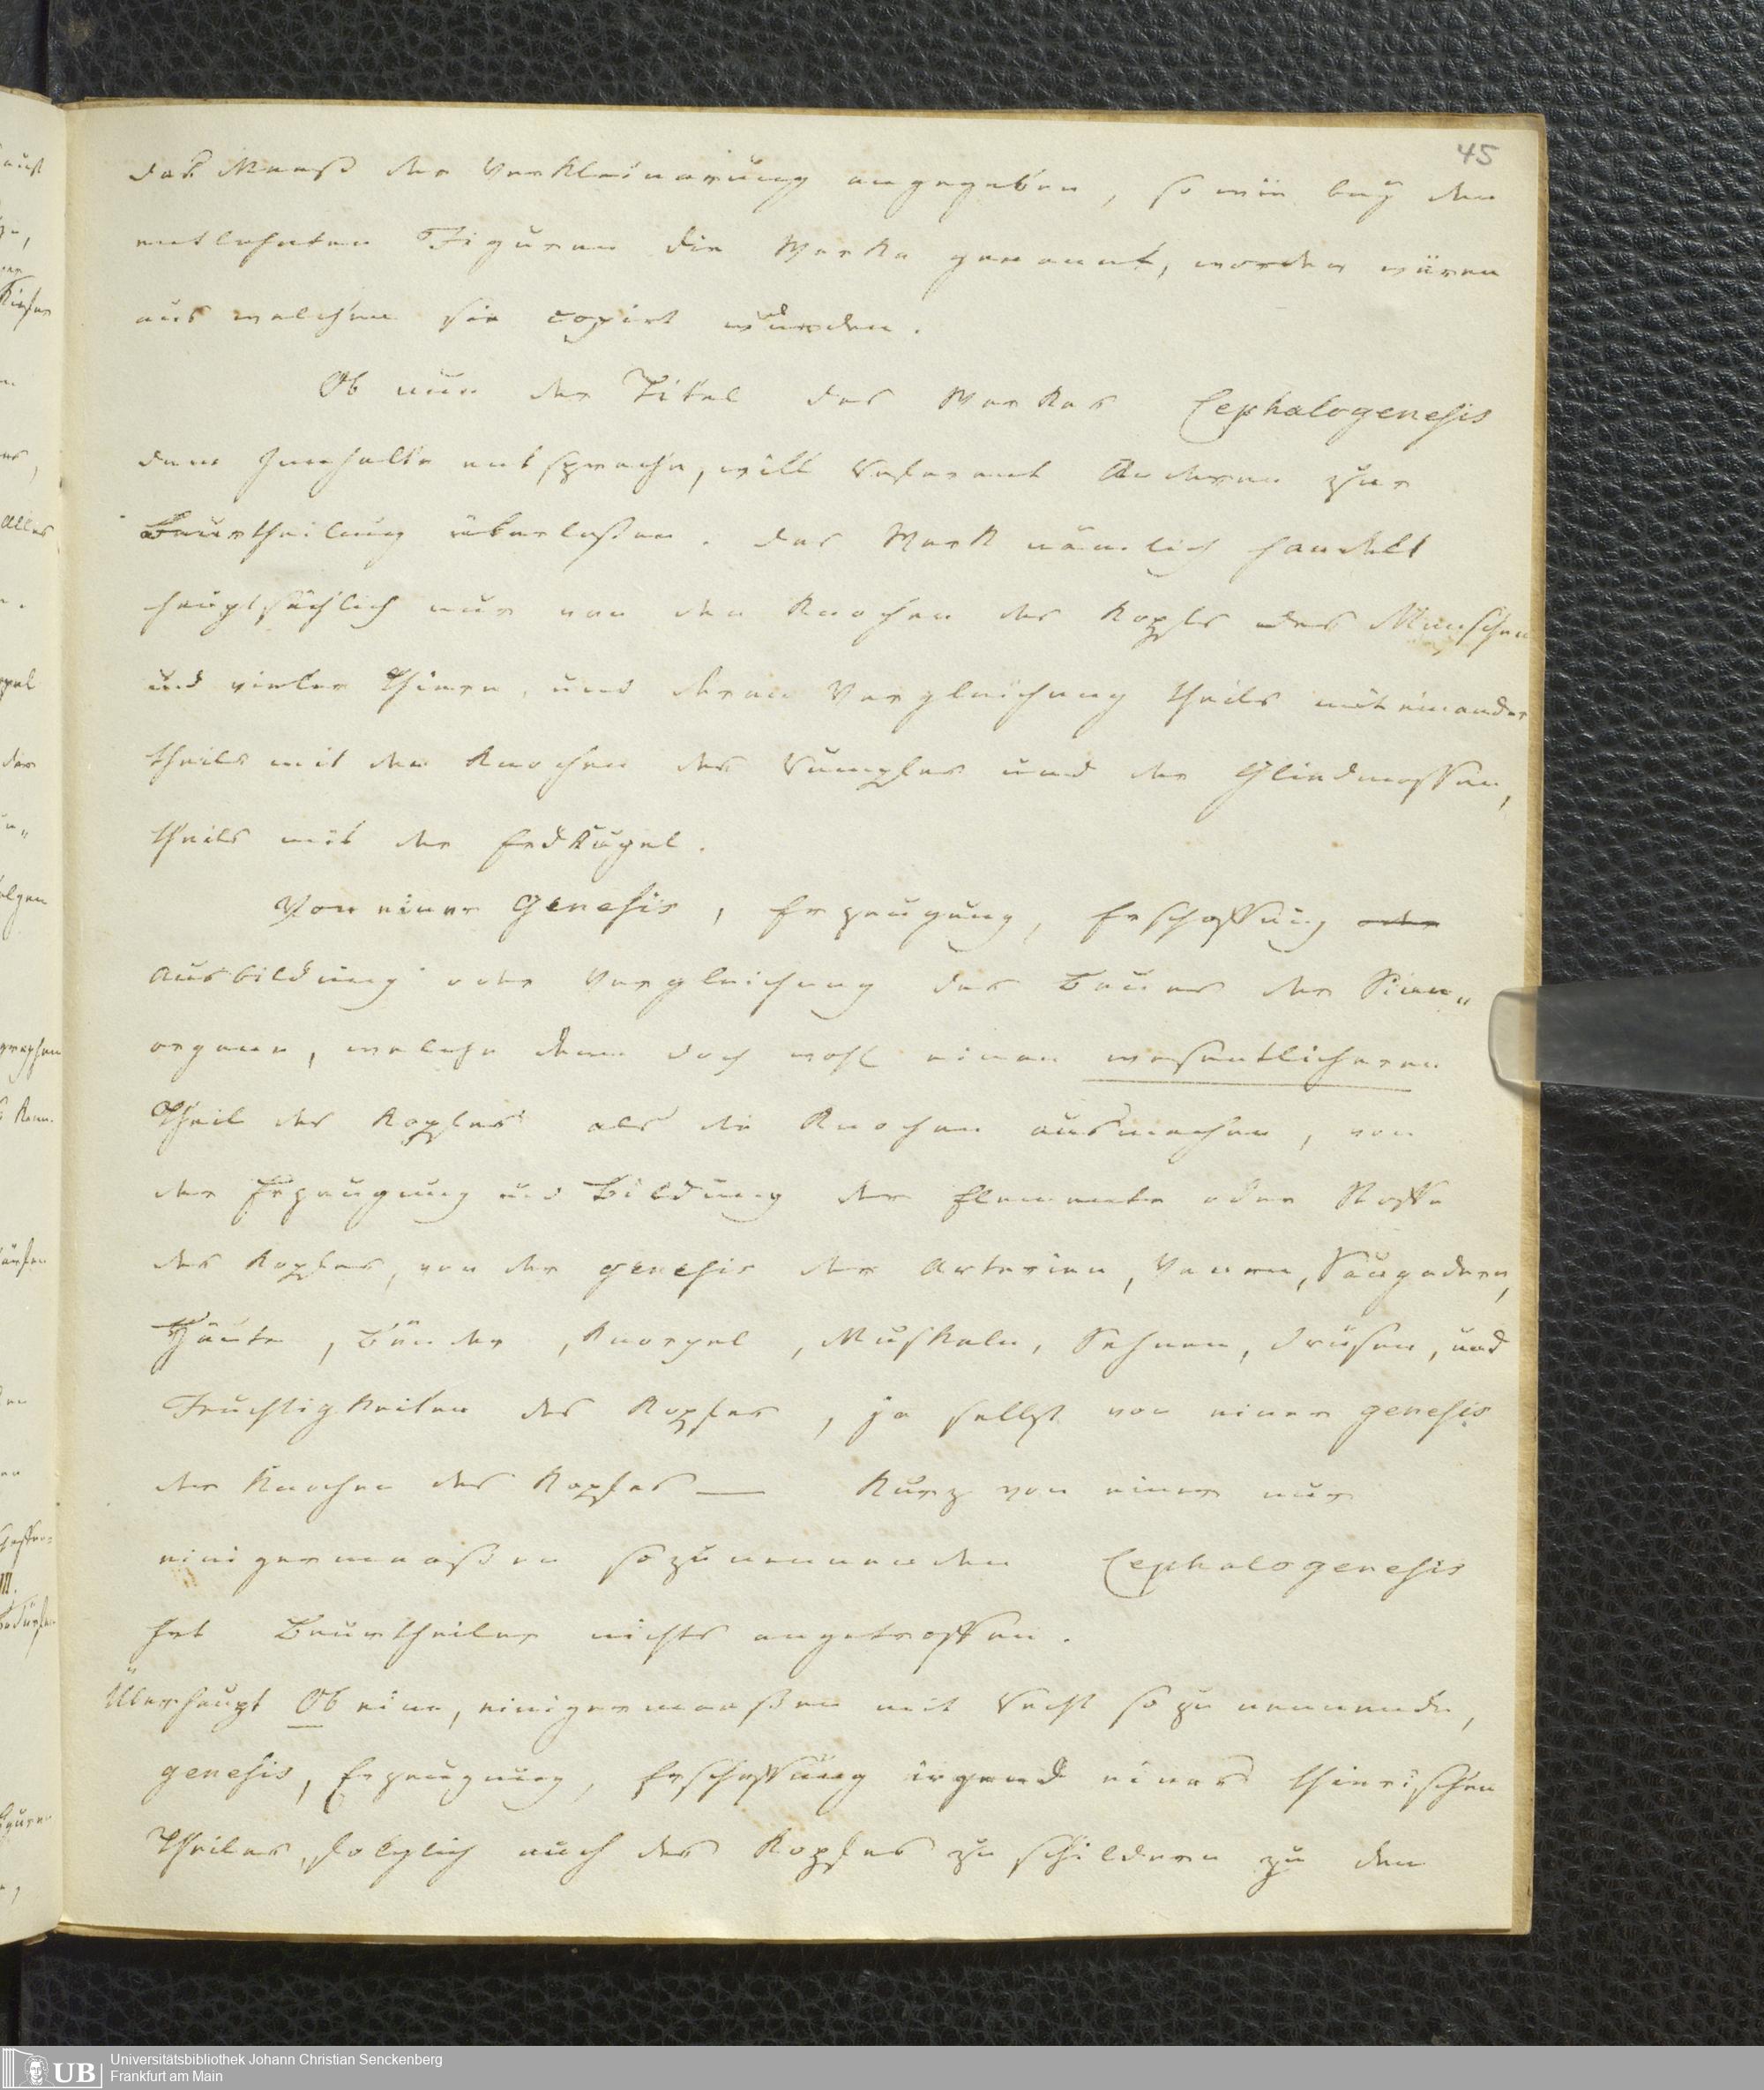 45
das Maaß der Verkleinerung angegeben, so wie bey den
entlehnten Figuren die Werke genannt, worden wären
aus welchen sie copirt wurden.
Ob nun der Titel des Werkes Cephalogenesis
dem Innhalte entspreche, will Referent Anderen zur
Beurtheilung überlaßen. Das Werk nämlich handelt
hauptsächlich nur von den Knochen des Kopfes des Menschen
und vieler Thiere, und deren Vergleichung theils mit einander
theils mit den Knochen des Rumpfes und der Gliedmassen,
theils mit der Erdkugel.
Von einer Genesis, Erzeugung, Erschaffung oder
Ausbildung oder Vergleichung des Baues der Sinn„
organe, welche denn doch wohl einen wesentlicheren
Theil des Kopfes als die Knochen ausmachen, von
der Erzeugung und Bildung der Elemente oder Stoffe
des Kopfes, von der genesis der Arterien, Venen, Saugadern,
Häute, Bänder, Knorpel, Muskeln, Sehnen, Drüsen, und
Feuchtigkeiten des Kopfes, ja selbst von einer genesis
der Knochen des Kopfes — Kurz von einer nur
einigermaaßen so zu nennenden Cephalogenesis
hat Beurtheiler nichts angetroffen.
Überhaupt Ob eine, einigermaaßen mit Recht so zu nennende,
genesis, Erzeugung, Erschaffung irgend eines thierischen
Theiles, folglich auch des Kopfes zu schildern zu den
Universitätsbibliothek Johann Christian Senckenberg
Frankfurt am Main
UB